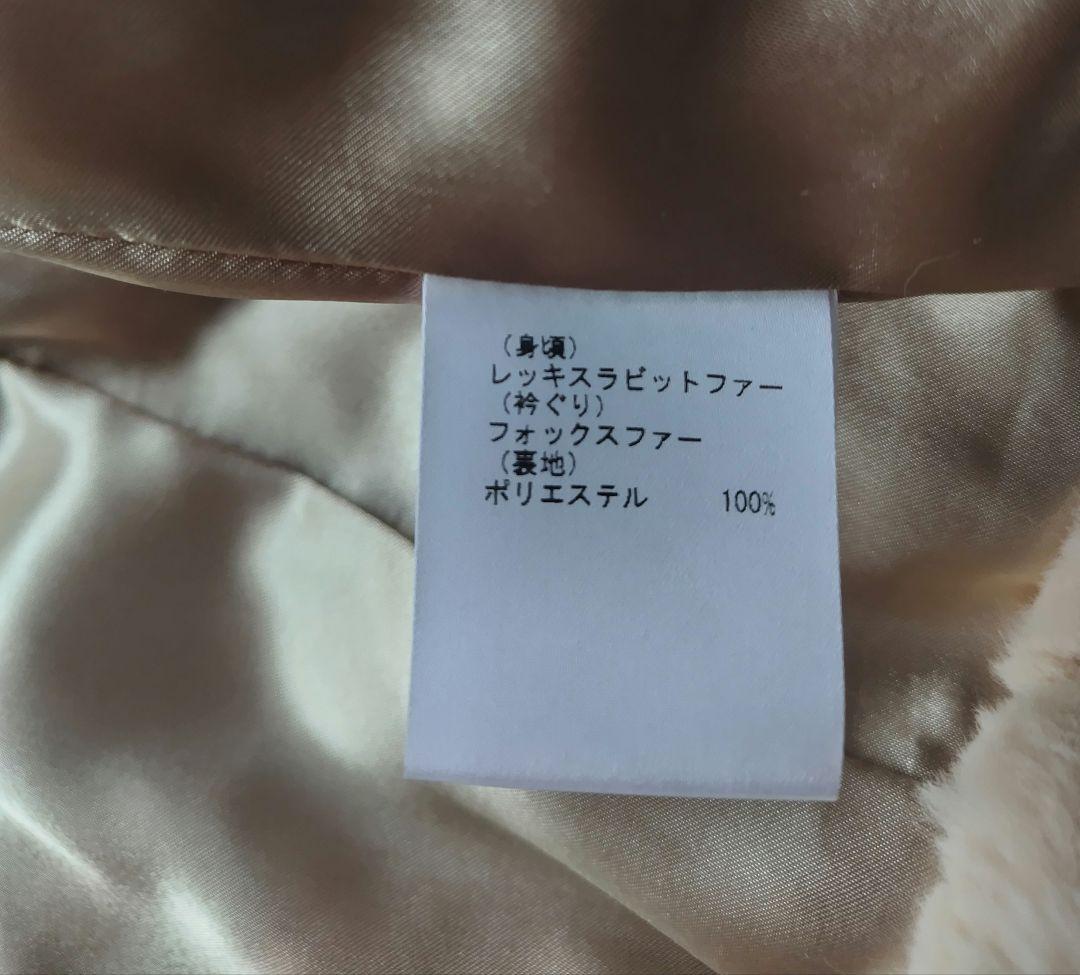 （身頃）
レッキスラビットファー
（衿ぐり）
フォックスファー
（裏地）
ポリエステル 100%